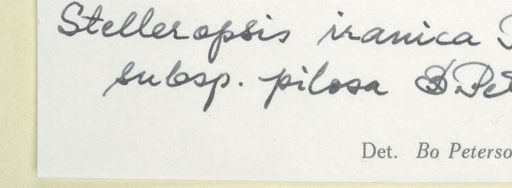 Stelleropsis iranica
subsp. pilosa B Pet
Det. Bo Peterso